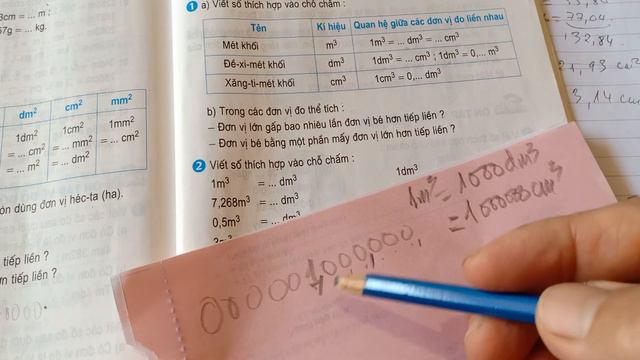 3cm = ... m ;
67g = ... kg.
dm² cm² mm²
1dm² 1cm² 1mm²
= ... cm² = ... mm² = ... cm²
= ... m² = ... dm²
dùng đơn vị héc-ta (ha).
tiếp liền ?
tiếp liền ?
1 a) Viết số thích hợp vào chỗ chấm :
Tên Kí hiệu Quan hệ giữa các đơn vị đo liền nhau
Mét khối m³ 1m³ = ... dm³ = ... cm³
Đề-xi-mét khối dm³ 1dm³ = ... cm³ ; 1dm³ = 0,... m³
Xăng-ti-mét khối cm³ 1cm³ = 0,... dm³
b) Trong các đơn vị đo thể tích :
– Đơn vị lớn gấp bao nhiêu lần đơn vị bé hơn tiếp liền ?
– Đơn vị bé bằng một phần mấy đơn vị lớn hơn tiếp liền ?
2 Viết số thích hợp vào chỗ chấm :
1m³ = ... dm³ 1dm³
7,268m³ = ... dm³
0,5m³ = ... dm³
1m³ = 1000dm³
= 1000000cm³
0000001000000
132,84
3,14